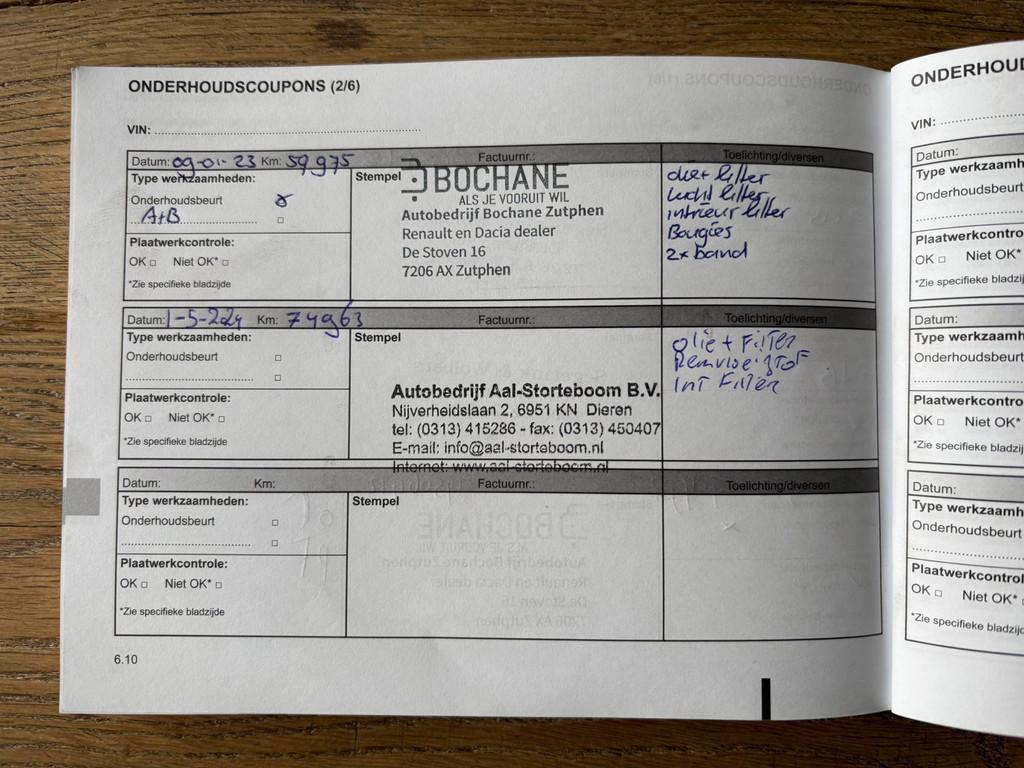 ONDERHOUDSCOUPONS (2/6)
VIN: ........................................
Datum: 09-01-23 Km: 59975 Factuurnr.: Toelichting/diversen
Type werkzaamheden:
Onderhoudsbeurt
A+B
Plaatwerkcontrole:
OK □ Niet OK* □
*Zie specifieke bladzijde
Stempel
BOCHANE
ALS JE VOORUIT WIL
Autobedrijf Bochane Zutphen
Renault en Dacia dealer
De Stoven 16
7206 AX Zutphen
filter
lucht filter
intrieur filter
Bougies
2x band
Datum: 1-5-2024 Km: 74963 Factuurnr.: Toelichting/diversen
Type werkzaamheden:
Onderhoudsbeurt □
........................................ □
Plaatwerkcontrole:
OK □ Niet OK* □
*Zie specifieke bladzijde
Stempel
Autobedrijf Aal-Storteboom B.V.
Nijverheidslaan 2, 6951 KN Dieren
tel: (0313) 415286 - fax: (0313) 450407
E-mail: info@aal-storteboom.nl
Internet: www.aal-storteboom.nl
olie + Filter
Remvloeistof
Int Filter
Datum: Km: Factuurnr.: Toelichting/diversen
Type werkzaamheden:
Onderhoudsbeurt □
........................................ □
Plaatwerkcontrole:
OK □ Niet OK* □
*Zie specifieke bladzijde
Stempel
6.10
ONDERHOU
VIN:
Datum:
Type werkzaamh
Onderhoudsbeurt
Plaatwerkcontro
OK □ Niet OK*
*Zie specifieke bladzij
Datum:
Type werkzaamh
Onderhoudsbeurt
Plaatwerkcontro
OK □ Niet OK*
*Zie specifieke bladzij
Datum:
Type werkzaamh
Onderhoudsbeurt
Plaatwerkcontrol
OK □ Niet OK*
*Zie specifieke bladzijd